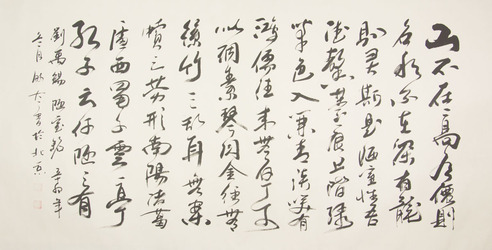 山不在高有僊則
名水不在深有龍
則靈斯是陋室惟吾
德馨苔痕上階綠
草色入簾青談笑有
鴻儒往來無白丁可
以調素琴閱金經無
絲竹之亂耳無案
牘之勞形南陽諸葛
廬西蜀子雲亭
孔子云何陋之有
劉禹錫陋室銘 年
冬月 書於北京